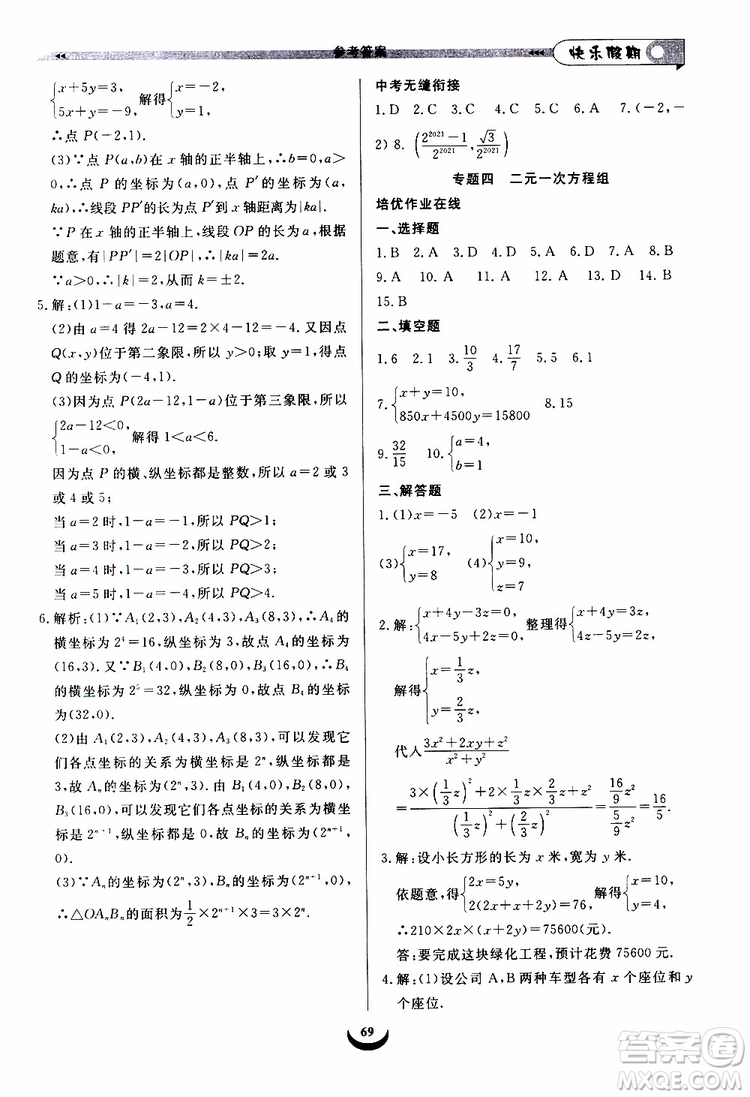 参考答案
快乐假期
{x+5y=3, 5x+y=-9, 解得{x=-2, y=1,
∴点 P(-2,1).
(3)∵点 P(a,b)在 x 轴的正半轴上,∴b=0,a>0.
∴点 P 的坐标为(a,0),点 P′的坐标为(a,
ka),∴线段 PP′的长为点 P′到 x 轴距离为|ka|.
∵P 在 x 轴的正半轴,线段 OP 的长为 a,根据
题意,有|PP′|=2|OP|,∴|ka|=2a.
∵a>0,∴|k|=2,从而 k=±2.
5.解:(1)1-a=-3,a=4.
(2)由 a=4 得 2a-12=2×4-12=-4.又因点
Q(x,y)位于第二象限,所以 y>0,取 y=1,得点
Q 的坐标为(-4,1).
(3)因为点 P(2a-12,1-a)位于第三象限,所以
{2a-12<0, 1-a<0, 解得 1<a<6.
因为点 P 的横、纵坐标都是整数,所以 a=2 或 3
或 4 或 5;
当 a=2 时,1-a=-1,所以 PQ>1;
当 a=3 时,1-a=-2,所以 PQ>2;
当 a=4 时,1-a=-3,所以 PQ>3;
当 a=5 时,1-a=-4,所以 PQ>4.
6.解析:(1)∵A₁(2,3),A₂(4,3),A₃(8,3),∴A₄的
横坐标为 2⁴=16,纵坐标为 3,故点 A₄的坐标为
(16,3).又∵B₁(4,0),B₂(8,0),B₃(16,0),∴B₄
的横坐标为 2⁵=32,纵坐标为 0,故点 B₄的坐标
为(32,0).
(2)由 A₁(2,3),A₂(4,3),A₃(8,3),可以发现它
们各点坐标的关系为横坐标是 2ⁿ,纵坐标都是
3,故 Aₙ的坐标为(2ⁿ,3).由 B₁(4,0),B₂(8,0),
B₃(16,0),可以发现它们各点坐标的关系为横坐
标是 2ⁿ⁺¹,纵坐标都是 0,故 Bₙ的坐标为(2ⁿ⁺¹,
0).
(3)∵Aₙ的坐标为(2ⁿ,3),Bₙ的坐标为(2ⁿ⁺¹,0),
∴△OAₙBₙ的面积为1/2×2ⁿ⁺¹×3=3×2ⁿ.
中考无缝衔接
1.D 2.D 3.A 4.C 5.C 6.A 7.(-2,-
2) 8.((2²⁰²¹-1)/2²⁰²¹, √3/2²⁰²¹)
专题四 二元一次方程组
培优作业在线
一、选择题
1.B 2.A 3.D 4.D 5.D 6.D 7.A 8.D
9.A 10.A 11.C 12.A 13.D 14.C
15.B
二、填空题
1.6 2.1 3.10/3 4.17/7 5.-20 6.1
7.{x+y=10, 850x+4500y=15800 8.15
9.32/15 10.{a=4, b=1
三、解答题
1.(1)x=-5 (2)x=-1
(3){x=17, y=8 (4){x=10, y=9, z=7.
2.解:{x+4y-3z=0, 4x-5y+2z=0, 整理得{x+4y=3z, 4x-5y=-2z,
解得{x=1/3z, y=2/3z,
代入(3x²+2xy+z²)/(x²+y²)
=(3×(1/3z)²+2×1/3z×2/3z+z²)/((1/3z)²+(2/3z)²)=(16/9z²)/(5/9z²)=16/5.
3.解:设小长方形的长为 x 米,宽为 y 米,
依题意,得{2x=5y, 2(2x+x+2y)=76 解得{x=10, y=4
∴210×2x×(x+2y)=75600(元).
答:要完成这块绿化工程,预计花费 75600 元.
4.解:(1)设公司 A,B 两种车型各有 x 个座位和 y
个座位.
69
答案圈
MXQE.COM